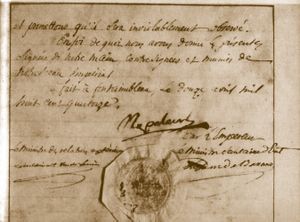 et promettons qu'il sera inviolablement observé.
En foi de quoi nous avons donné les présentes
signées de notre main, contresignées et munies de
notre sceau impérial.
fait à fontainebleau le douze avril mil
huit cent quatorze.
Napoleon
Par l'Empereur
Le Ministre des relations
Le Ministre secrétaire d'Etat